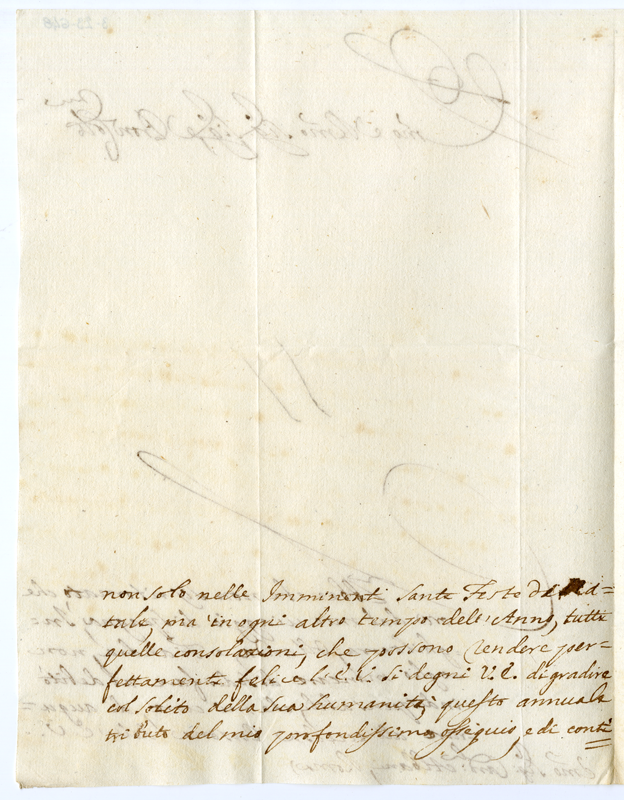 non solo nelle Imminenti Sante Feste di Na=
tale, ma in ogni altro tempo dell'Anno, tutte
quelle consolazioni, che possono rendere per=
fettamente felice l'E.V. Si degni V.E. di gradire
col solito della sua humanità, questo annuale
tributo del mio profondissimo ossequio, e di conti=